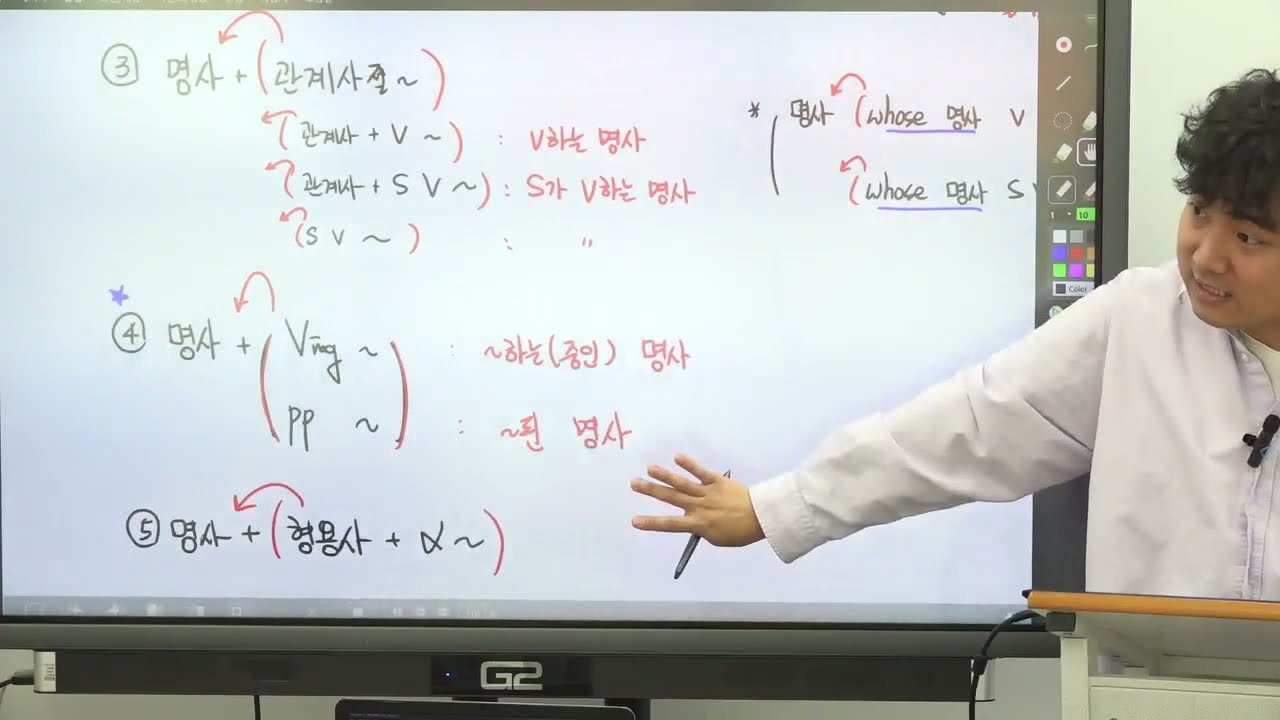 ③ 명사 + (관계사절 ~)
(관계사 + V ~) : V하는 명사
(관계사 + S V ~) : S가 V하는 명사
(S V ~) : "
* 명사 (whose 명사 V
(whose 명사 S V
④ 명사 + (Ving ~ : ~하는(중인) 명사
pp ~) : ~된 명사
⑤ 명사 + (형용사 + α ~)
1
10
Color
G2